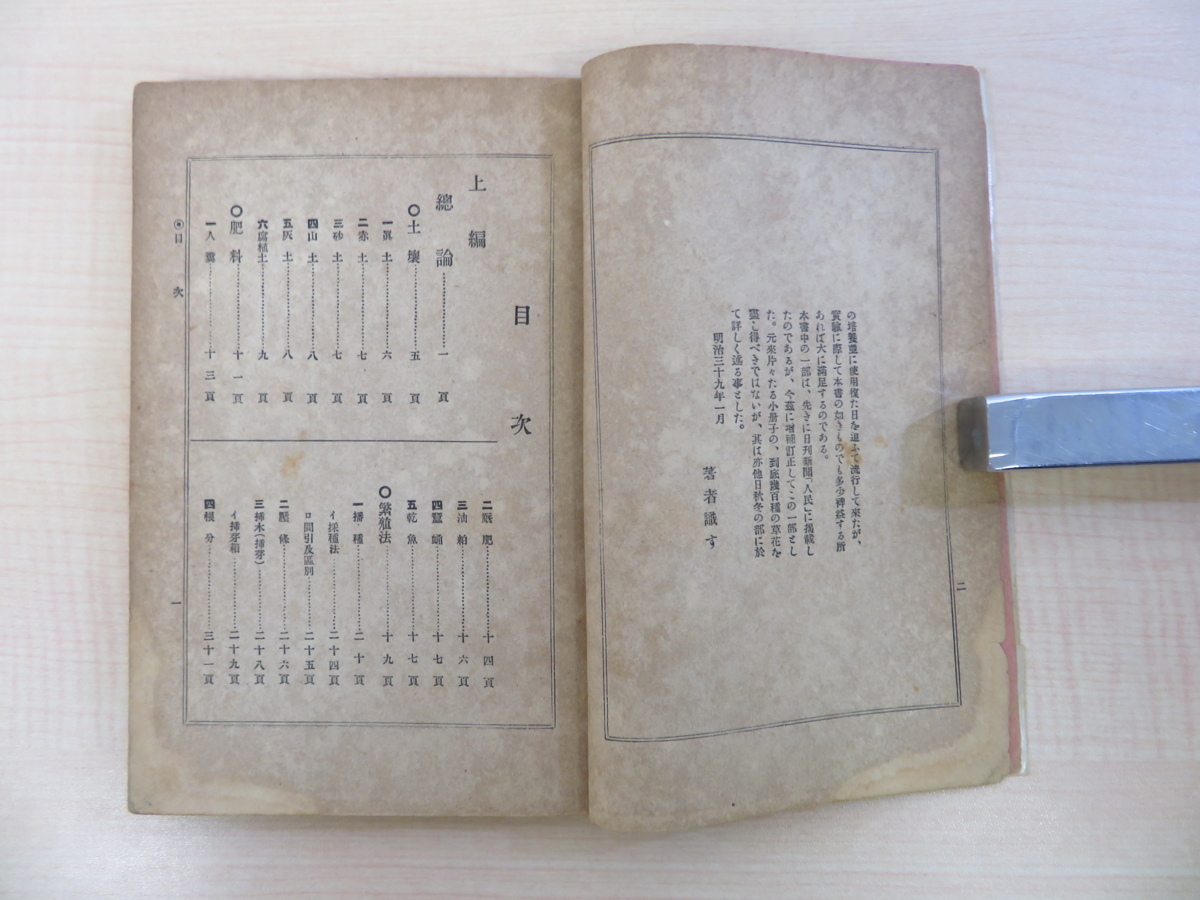 の培養更に使用復た日を追ふて流行して來たが、
實驗に際して本書の如きものでも多少裨益する所
あれば大に滿足するのである。
本書中の一部は、先きに日刊新聞「人民」に掲載し
たのであるが、今茲に增補訂正してこの一部とし
た。元來片々たる小册子の、到底幾百種の草花を
盡し得べきではないが、其は亦他日秋冬の部に於
て詳しく述る事とした。
明治三十九年一月
著者識す
二
目次
上編
總論……一頁
〇土壤……五頁
一眞土……六頁
二赤土……七頁
三砂土……七頁
四山土……八頁
五灰土……八頁
六腐植土……九頁
〇肥料……十一頁
一人糞……十三頁
二厩肥……十四頁
三油粕……十六頁
四蠶蛹……十七頁
五乾魚……十七頁
〇繁殖法……十九頁
一播種……二十頁
イ採種法……二十四頁
ロ間引及區別……二十五頁
二壓條……二十六頁
三揷木(揷芽)……二十八頁
イ揷芽箱……二十九頁
四根分……三十一頁
目次
一